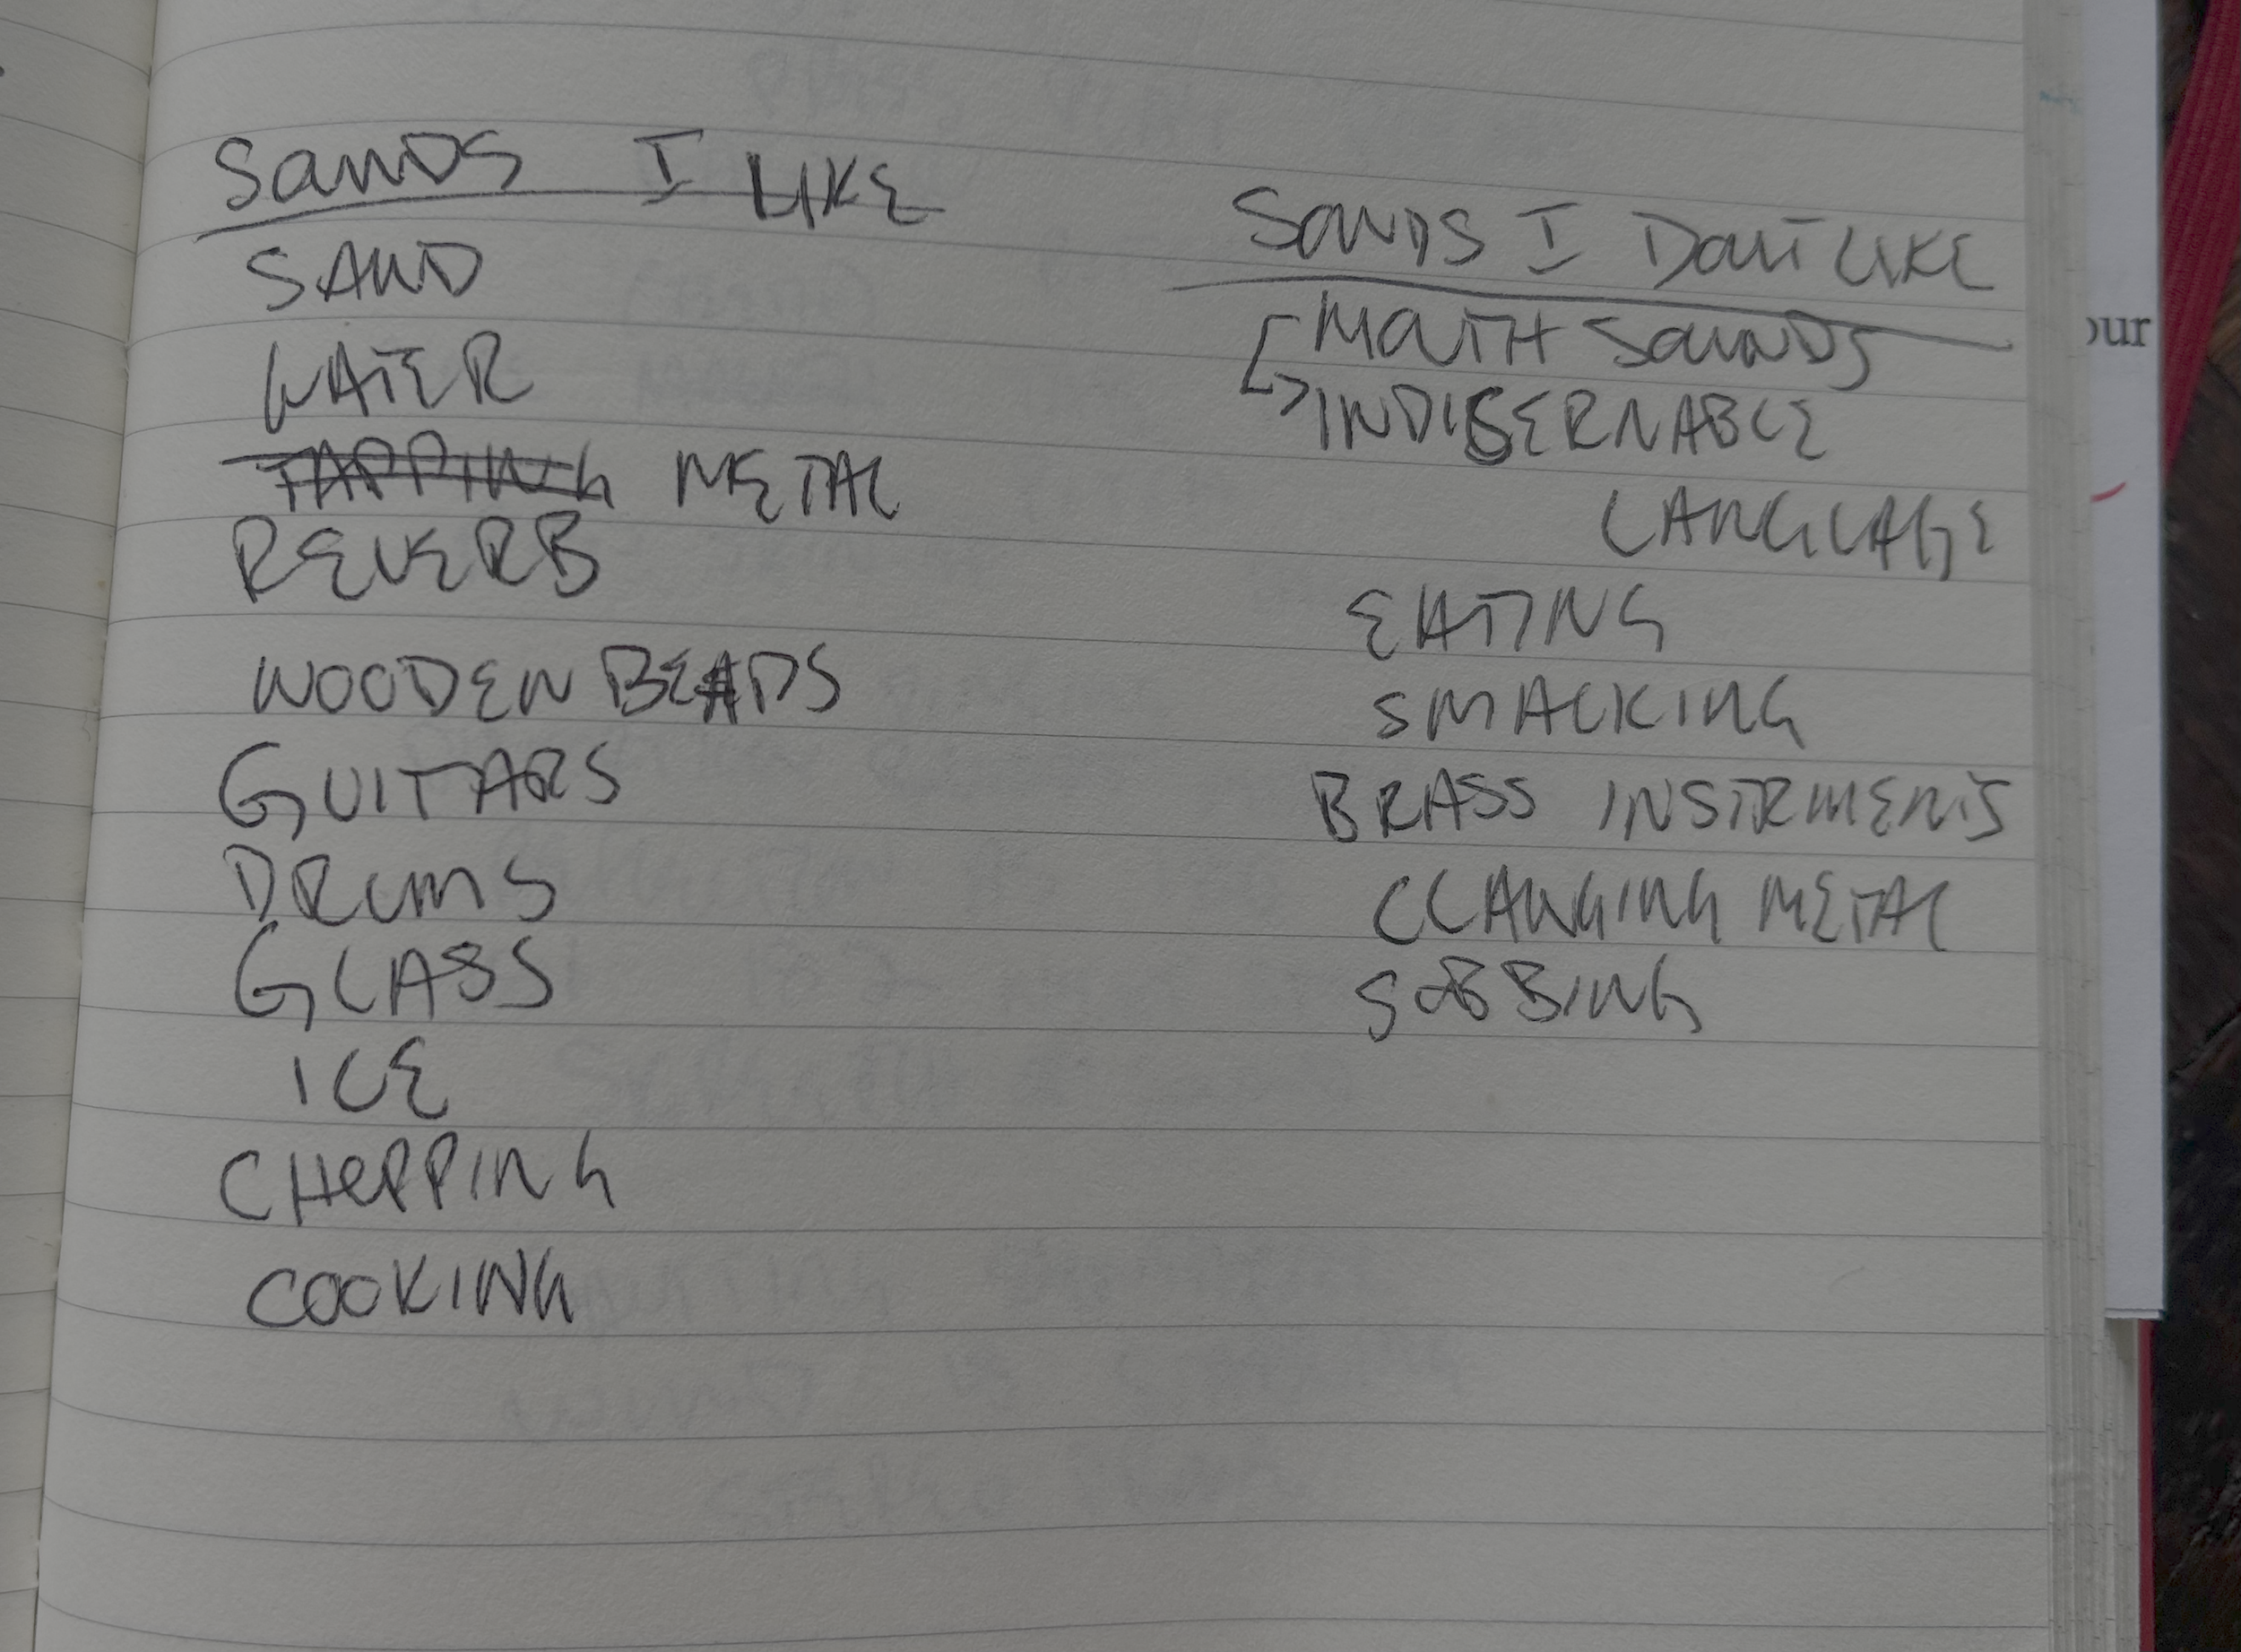 Sounds I LIKE
SAND
WATER
TAPPING METAL
REVERB
WOODEN BEADS
GUITARS
DRUMS
GLASS
ICE
CHOPPING
COOKING
Sounds I Don't LIKE
MOUTH SOUNDS
INDISERNABLE
LANGUAGE
EATING
SMACKING
BRASS INSTRUMENTS
CLANGING METAL
SOBBING
our